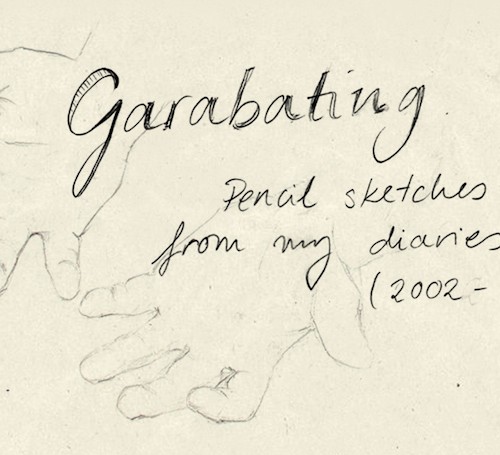 Garabating
Pencil sketches
from my diaries
(2002-